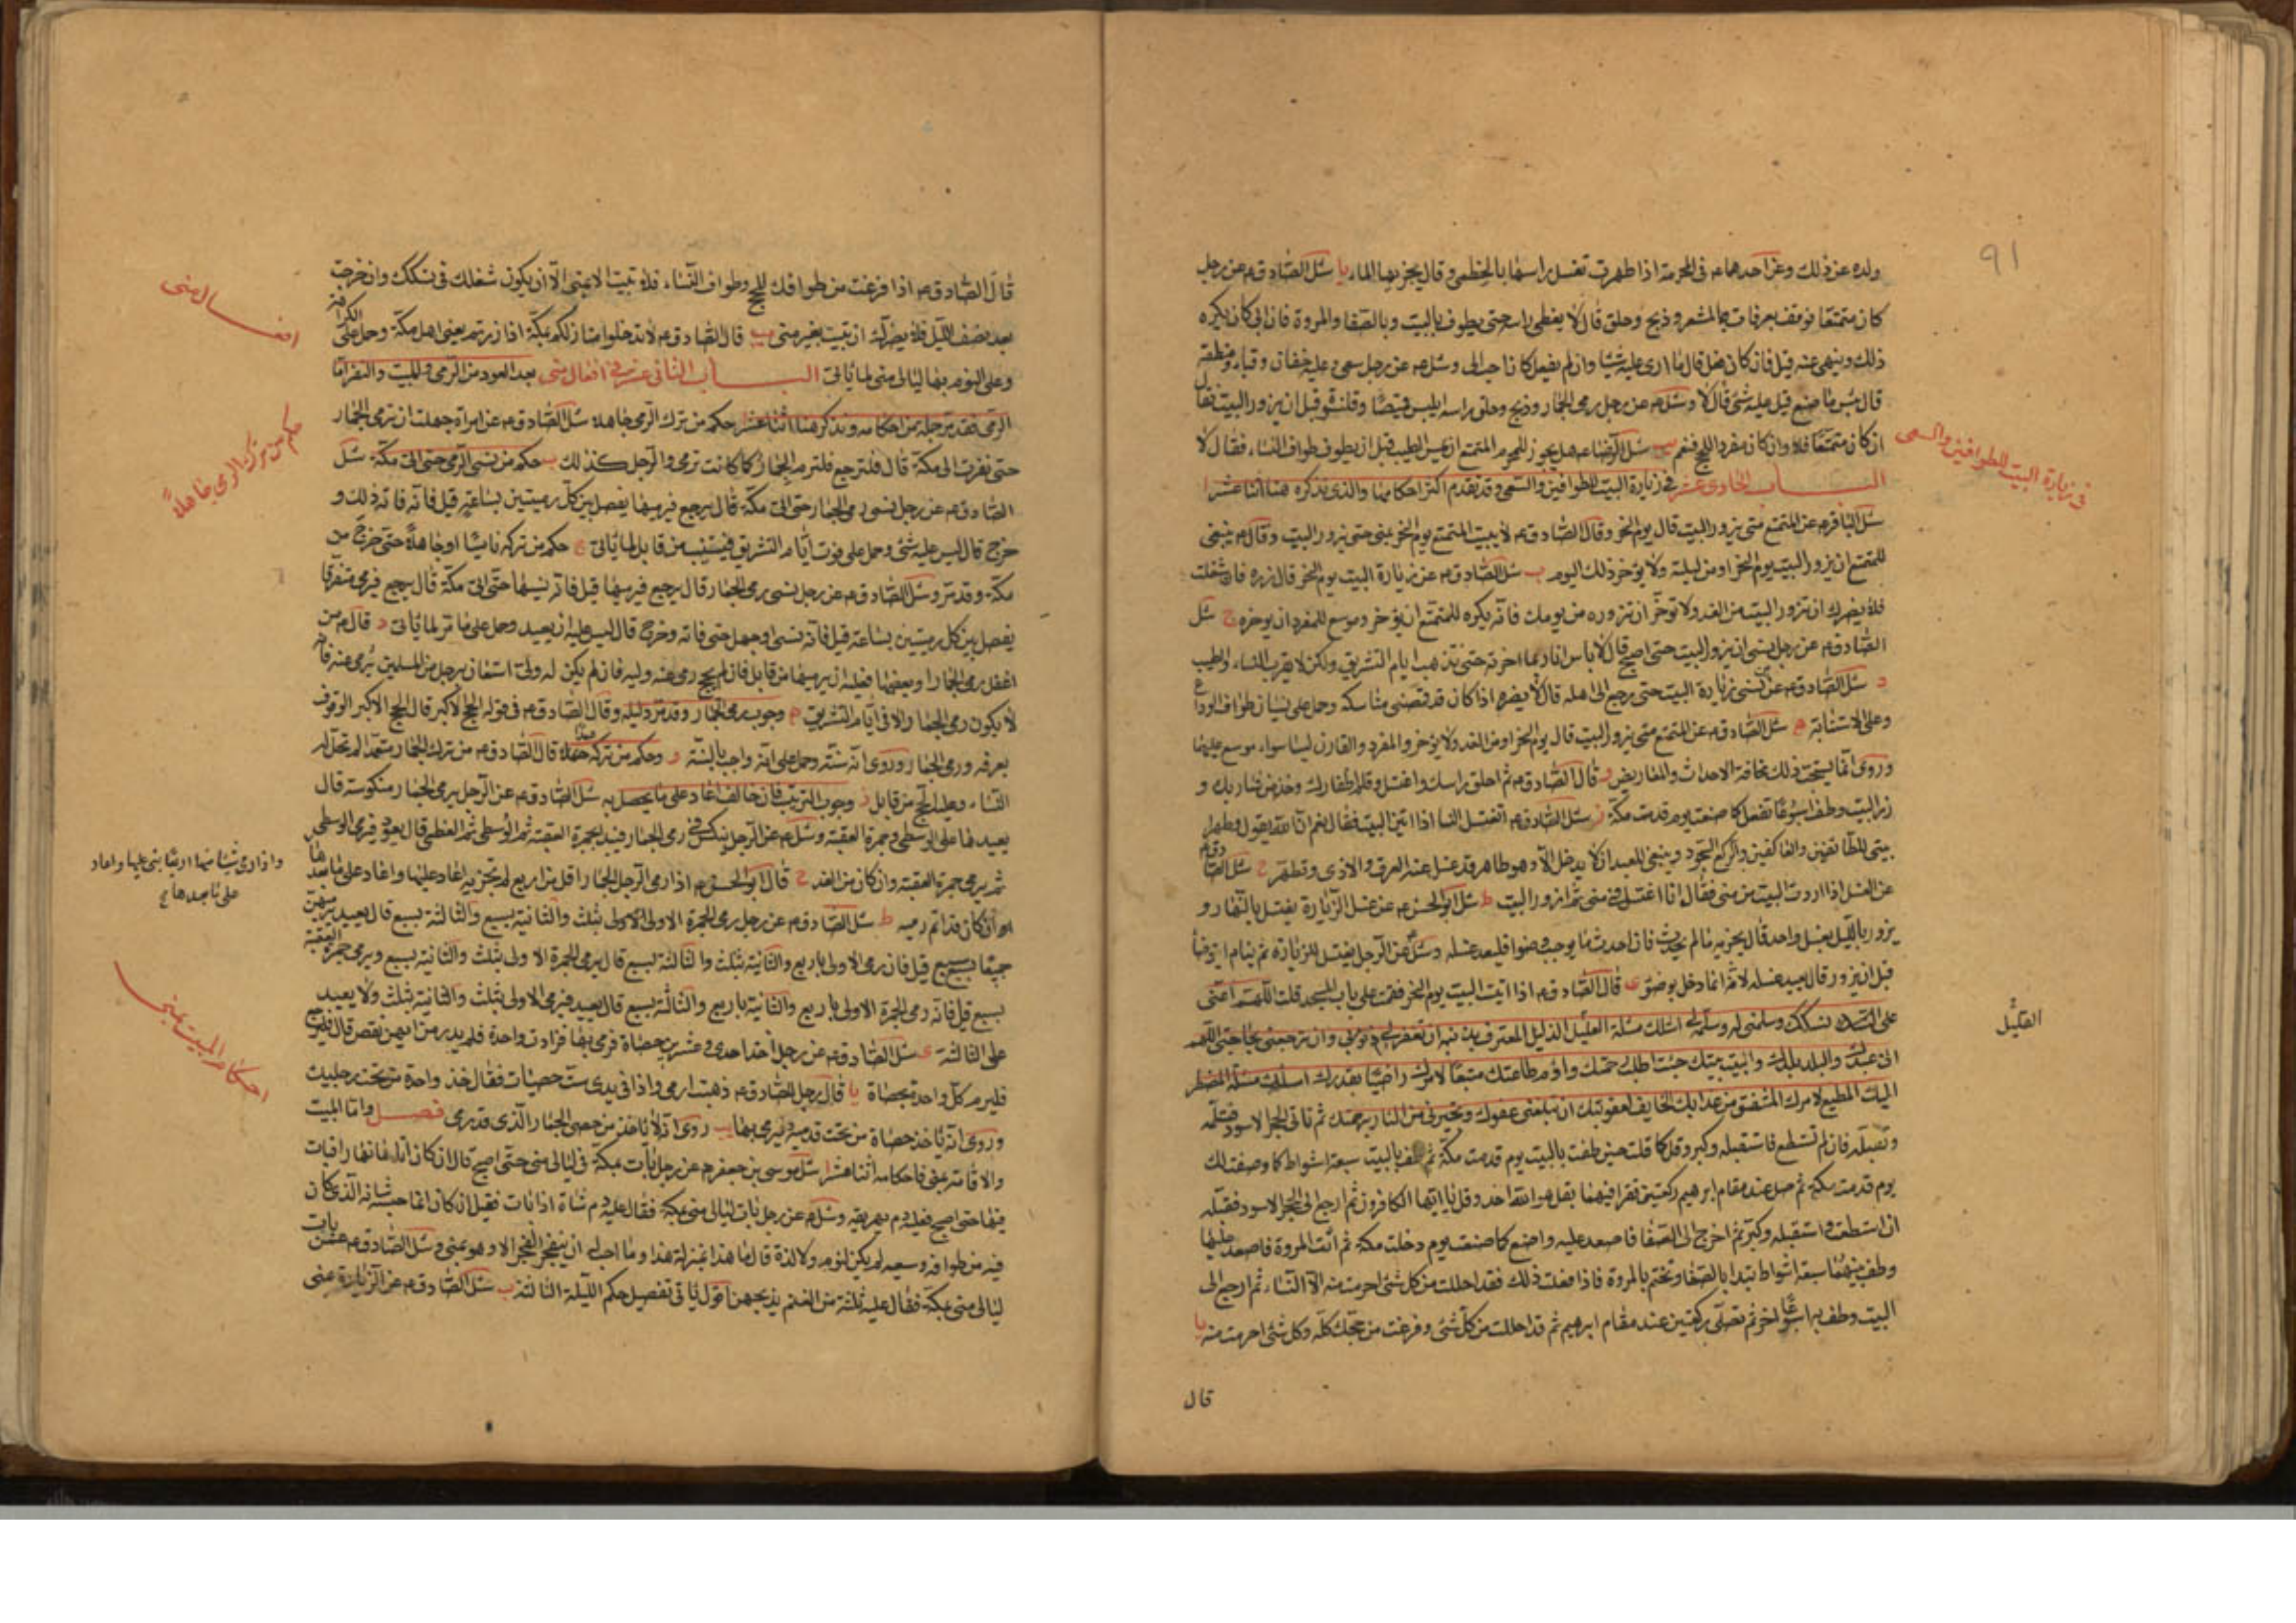 91
ولده عن ذلك وعن احدهما ع في المحرمة اذا طهرت تغسل راسها بالخطمي وقال يجزيها الماء يا سئل الصادق ع عن رجل
كان متمتعا فوقف بعرفات وبالمشعر وذبح وحلق قال لا يغطي راسه حتى يطوف بالبيت وبالصفا والمروة فان ابي كان يكره
ذلك وينهى عنه قيل فان كان فعل قال ما ارى عليه شيئا وان لم يفعل كان احب الي وسئل ع عن رجل سعى وعليه خفان وقباء ومنطقة
قال بئس ما صنع قيل عليه شئ قال لا وسئل ع عن رجل رمى الجمار وذبح وحلق راسه ايلبس قميصا وقلنسوة قبل ان يزور البيت فقال
ان كان متمتعا فلا وان كان مفردا للحج فنعم يب سئل الرضا ع هل يجوز للمحرم المتمتع ان يمس الطيب قبل ان يطوف طواف النساء فقال لا
في زيارة البيت للطوافين والسعي
الباب الحادي عشر في زيارة البيت للطوافين والسعي وقد تقدم اكثر احكامها والذي نذكره هنا اثنا عشر ا
سئل الباقر ع عن المتمتع متى يزور البيت قال يوم النحر وقال الصادق ع لا يبيت المتمتع يوم النحر بمنى حتى يزور البيت وقال ع ينبغي
للمتمتع ان يزور البيت يوم النحر او من ليلته ولا يؤخر ذلك اليوم ب سئل الصادق ع عن زيارة البيت يوم النحر قال زره فان شغلت
فلا يضرك ان تزور البيت من الغد ولا تؤخر ان تزوره من يومك فانه يكره للمتمتع ان يؤخر وموسع للمفرد ان يؤخره ج سئل
الصادق ع عن رجل نسي ان يزور البيت حتى اصبح قال لا باس انا ربما اخرته حتى تذهب ايام التشريق ولكن لا يقرب النساء والطيب
د سئل الصادق ع عمن نسي زيارة البيت حتى يرجع الى اهله قال لا يضره اذا كان قد قضى مناسكه وحمل على نسيان طواف الوداع
وعلى الاستنابة ه سئل الصادق ع عن المتمتع متى يزور البيت قال يوم النحر او من الغد ولا يؤخر والمفرد والقارن ليسا سواء موسع عليهما
وروى انما يستحب ذلك مخافة الاحداث والمعاريض و قال الصادق ع ثم احلق راسك واغتسل وقلم اظفارك وخذ من شاربك و
زر البيت وطف اسبوعا تفعل كما صنعت يوم قدمت مكة ز سئل الصادق ع اتغتسل النسا اذا اتين البيت فقال نعم ان الله يقول وطهرا
بيتي للطائفين والعاكفين والركع السجود وينبغي للعبد ان لا يدخل الا وهو طاهر قد غسل عنه العرق والاذى وتطهر ح سئل الصادق ع
عن الغسل اذا اردت البيت من منى فقال انا اغتسل في منى ثم ازور البيت ط سئل ابو الحسن ع عن غسل الزيارة يغتسل بالنهار و
يزور بالليل بغسل واحد قال يجزيه ما لم يحدث فان احدث ما يوجب وضوا فليعد غسله وسئل عن الرجل يغتسل للزيارة ثم ينام ايتوضا
قبل ان يزور قال يعيد غسله لانه انما دخل بوضوء ى قال الصادق ع اذا اتيت البيت يوم النحر فقمت على باب المسجد قلت اللهم اعنى
على نسكك وسلمني له وسلمه لي اسئلك مسئلة العليل الذليل المعترف بذنبه ان تغفر لي ذنوبي وان ترجعني بحاجتي اللهم
القليل
اني عبدك والبلد بلدك والبيت بيتك جئت اطلب رحمتك واؤم طاعتك متبعا لامرك راضيا بقدرك اسئلك مسئلة المضطر
اليك المطيع لامرك المشفق من عذابك الخايف لعقوبتك ان تبلغني عفوك وتجيرني من النار برحمتك ثم تاتي الحجر الاسود فتستلمه
وتقبله فان لم تستطع فاستقبله وكبر وقل كما قلت حين طفت بالبيت يوم قدمت مكة ثم طف بالبيت سبعة اشواط كما وصفت لك
يوم قدمت مكة ثم صل عند مقام ابرهيم ركعتين تقرا فيهما بقل هو الله احد وقل يا ايها الكافرون ثم ارجع الى الحجر الاسود فقبله
ان استطعت واستقبله وكبر ثم اخرج الى الصفا فاصعد عليه واصنع كما صنعت يوم دخلت مكة ثم ائت المروة فاصعد عليها
وطف بينهما سبعة اشواط تبدا بالصفا وتختم بالمروة فاذا فعلت ذلك فقد احللت من كل شئ احرمت منه الا النساء ثم ارجع الى
البيت وطف به اسبوعا اخر ثم تصلى ركعتين عند مقام ابرهيم ثم قد احللت من كل شئ وفرغت من حجك كله وكل شئ احرمت منه يا
قال
قال الصادق ع اذا فرغت من طوافك للحج وطواف النساء فلا تبيت الا بمنى الا ان يكون شغلك في نسكك وان خرجت
افعال منى
بعد نصف الليل فلا يضرك ان تبيت بغير منى يب قال الصادق ع لا تدخلوا منازلكم بمكة اذا زرتم يعني اهل مكة وحمل على الكراهة
وعلى النوم بها ليالي منى لما ياتي الباب الثاني عشر في افعال منى بعد العود من الرمي والمبيت والنفر اما
الرمي فقد مر جملة من احكامه ونذكر هنا اثنا عشر ا حكم من ترك الرمي جاهلا سئل الصادق ع عن امراة جهلت ان ترمي الجمار
حكم من ترك الرمي جاهلا
حتى نفرت الى مكة قال فلترجع فلترم الجمار كما كانت ترمي والرجل كذلك ب حكم من نسي الرمي حتى اتى مكة سئل
الصادق ع عن رجل نسي رمي الجمار حتى اتى مكة قال يرجع فيرميها يفصل بين كل رميتين بساعة قيل فانه فاته ذلك و
خرج قال ليس عليه شئ وحمل على فوت ايام التشريق فيستنيب من قابل لما ياتي ج حكم من تركه ناسيا او جاهلا حتى خرج من
مكة وقد مر وسئل الصادق ع عن رجل نسي رمي الجمار قال يرجع فيرميها قيل فانه نسيها حتى اتى مكة قال يرجع فيرمي متفرقا
يفصل بين كل رميتين بساعة قيل فانه نسى او جهل حتى فاته وخرج قال ليس عليه ان يعيد وحمل على ما مر لما ياتي د قال ع من
اغفل رمي الجمار او بعضها فعليه ان يرميها من قابل فان لم يحج رمى عنه وليه فان لم يكن له ولي استعان برجل من المسلمين يرمي عنه فانه
لا يكون رمي الجمار الا في ايام التشريق ه وجوب رمي الجمار وقد مر دليله وقال الصادق ع في قوله الحج الاكبر قال الحج الاكبر الوقوف
بعرفة ورمي الجمار وروى انه سنة وحمل على انه واجب بالسنة و وحكم من تركه عمدا قال الصادق ع من ترك الجمار متعمدا لم تحل له
النساء وعليه الحج من قابل ز وجوب الترتيب فان خالف اعاد على ما يحصل به سئل الصادق ع عن الرجل يرمي الجمار منكوسة قال
يعيدها على الوسطى وجمرة العقبة وسئل ع عن الرجل ينكس في رمي الجمار فيبدا بجمرة العقبة ثم الوسطى ثم العظمى قال يعود فيرمي الوسطى
ثم يرمي جمرة العقبة وان كان من الغد ح قال ابو الحسن ع اذا رمى الرجل الجمار اقل من اربع لم تجزيه اعاد عليها واعاد على ما بعدها
واذا رمى شيئا منها اربعا بنى عليها واعاد
على ما بعدها ح
وان كان قد اتم رميه ط سئل الصادق ع عن رجل رمى الجمرة الاولى بثلث والثانية بسبع والثالثة بسبع قال يعيد يرميهن
جميعا بسبع سبع قيل فان رمى الاولى باربع والثانية بثلث والثالثة بسبع قال يرمي الجمرة الاولى بثلث والثانية بسبع ويرمي جمرة العقبة
بسبع قيل فانه رمى الجمرة الاولى باربع والثانية باربع والثالثة بسبع قال يعيد فيرمي الاولى بثلث والثانية بثلث ولا يعيد
على الثالثة ى سئل الصادق ع عن رجل اخذ احدى وعشرين حصاة فرمى بها فزادت واحدة فلم يدر من ايهن نقص قال فليرجع
احكام المبيت بمنى
فليرم كل واحدة بحصاة يا قال رجل للصادق ع ذهبت ارمي واذا في يدي ست حصيات فقال خذ واحدة من تحت رجليك
وروى انه ياخذ حصاة من تحت قدميه فيرمي بها يب روى انه لا ياخذ من حصى الجمار الذي قد رمى فصل واما المبيت
والاقامة بمنى فاحكامه اثنا عشر ا سئل موسى بن جعفر ع عن رجل بات بمكة في ليالي منى حتى اصبح قال ان كان اتاها نهارا فبات
فيها حتى اصبح فعليه دم يهريقه وسئل ع عن رجل بات ليالي منى بمكة فقال عليه دم شاة اذا بات فقيل ان كان انما حبسه شانه الذي كان
فيه من طوافه وسعيه لم يكن لنوم ولا لذة قال ما هذا بمنزلة هذا وما احب ان ينفجر الفجر الا وهو بمنى وسئل الصادق ع عمن بات
ليالي منى بمكة فقال عليه ثلثة من الغنم يذبحهن اقول ياتي تفصيل حكم الليلة الثالثة ب سئل الصادق ع عن الزيارة عن منى